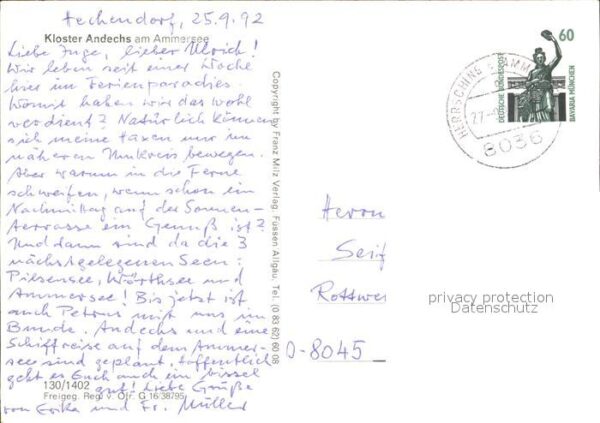 Hechendorf, 25.9.92
Kloster Andechs am Ammersee
Liebe Inge, lieber Ulrich!
Wir leben seit einer Woche
hier im Ferienparadies.
Womit haben wir das wohl
verdient? Natürlich können
sich meine Haxen nur im
näheren Umkreis bewegen.
Aber warum in die Ferne
schweifen, wenn schon ein
Nachmittag auf der Sonnen-
terrasse ein Genuß ist?
Und dann sind da die 3
nächstgelegenen Seen:
Pilsensee, Wörthsee und
Ammersee! Bis jetzt ist
auch Petrus mit uns im
Bunde. Andechs und eine
Schiffreise auf dem Ammer-
see sind geplant. Hoffentlich
geht es Euch auch ein bissel
gut! Liebe Grüße
von Erika und Fr. Müller
130/1402
Freigeg. Reg. v. Ofr. G 16/38795
Copyright by Franz Milz Verlag, Füssen Allgäu, Tel. (0 83 62) 60 08
HERRSCHING AMM
27.-
8036
60
DEUTSCHE BUNDESPOST
BAVARIA MÜNCHEN
Herrn
Seif
Rottwe
D-8045
privacy protection
Datenschutz